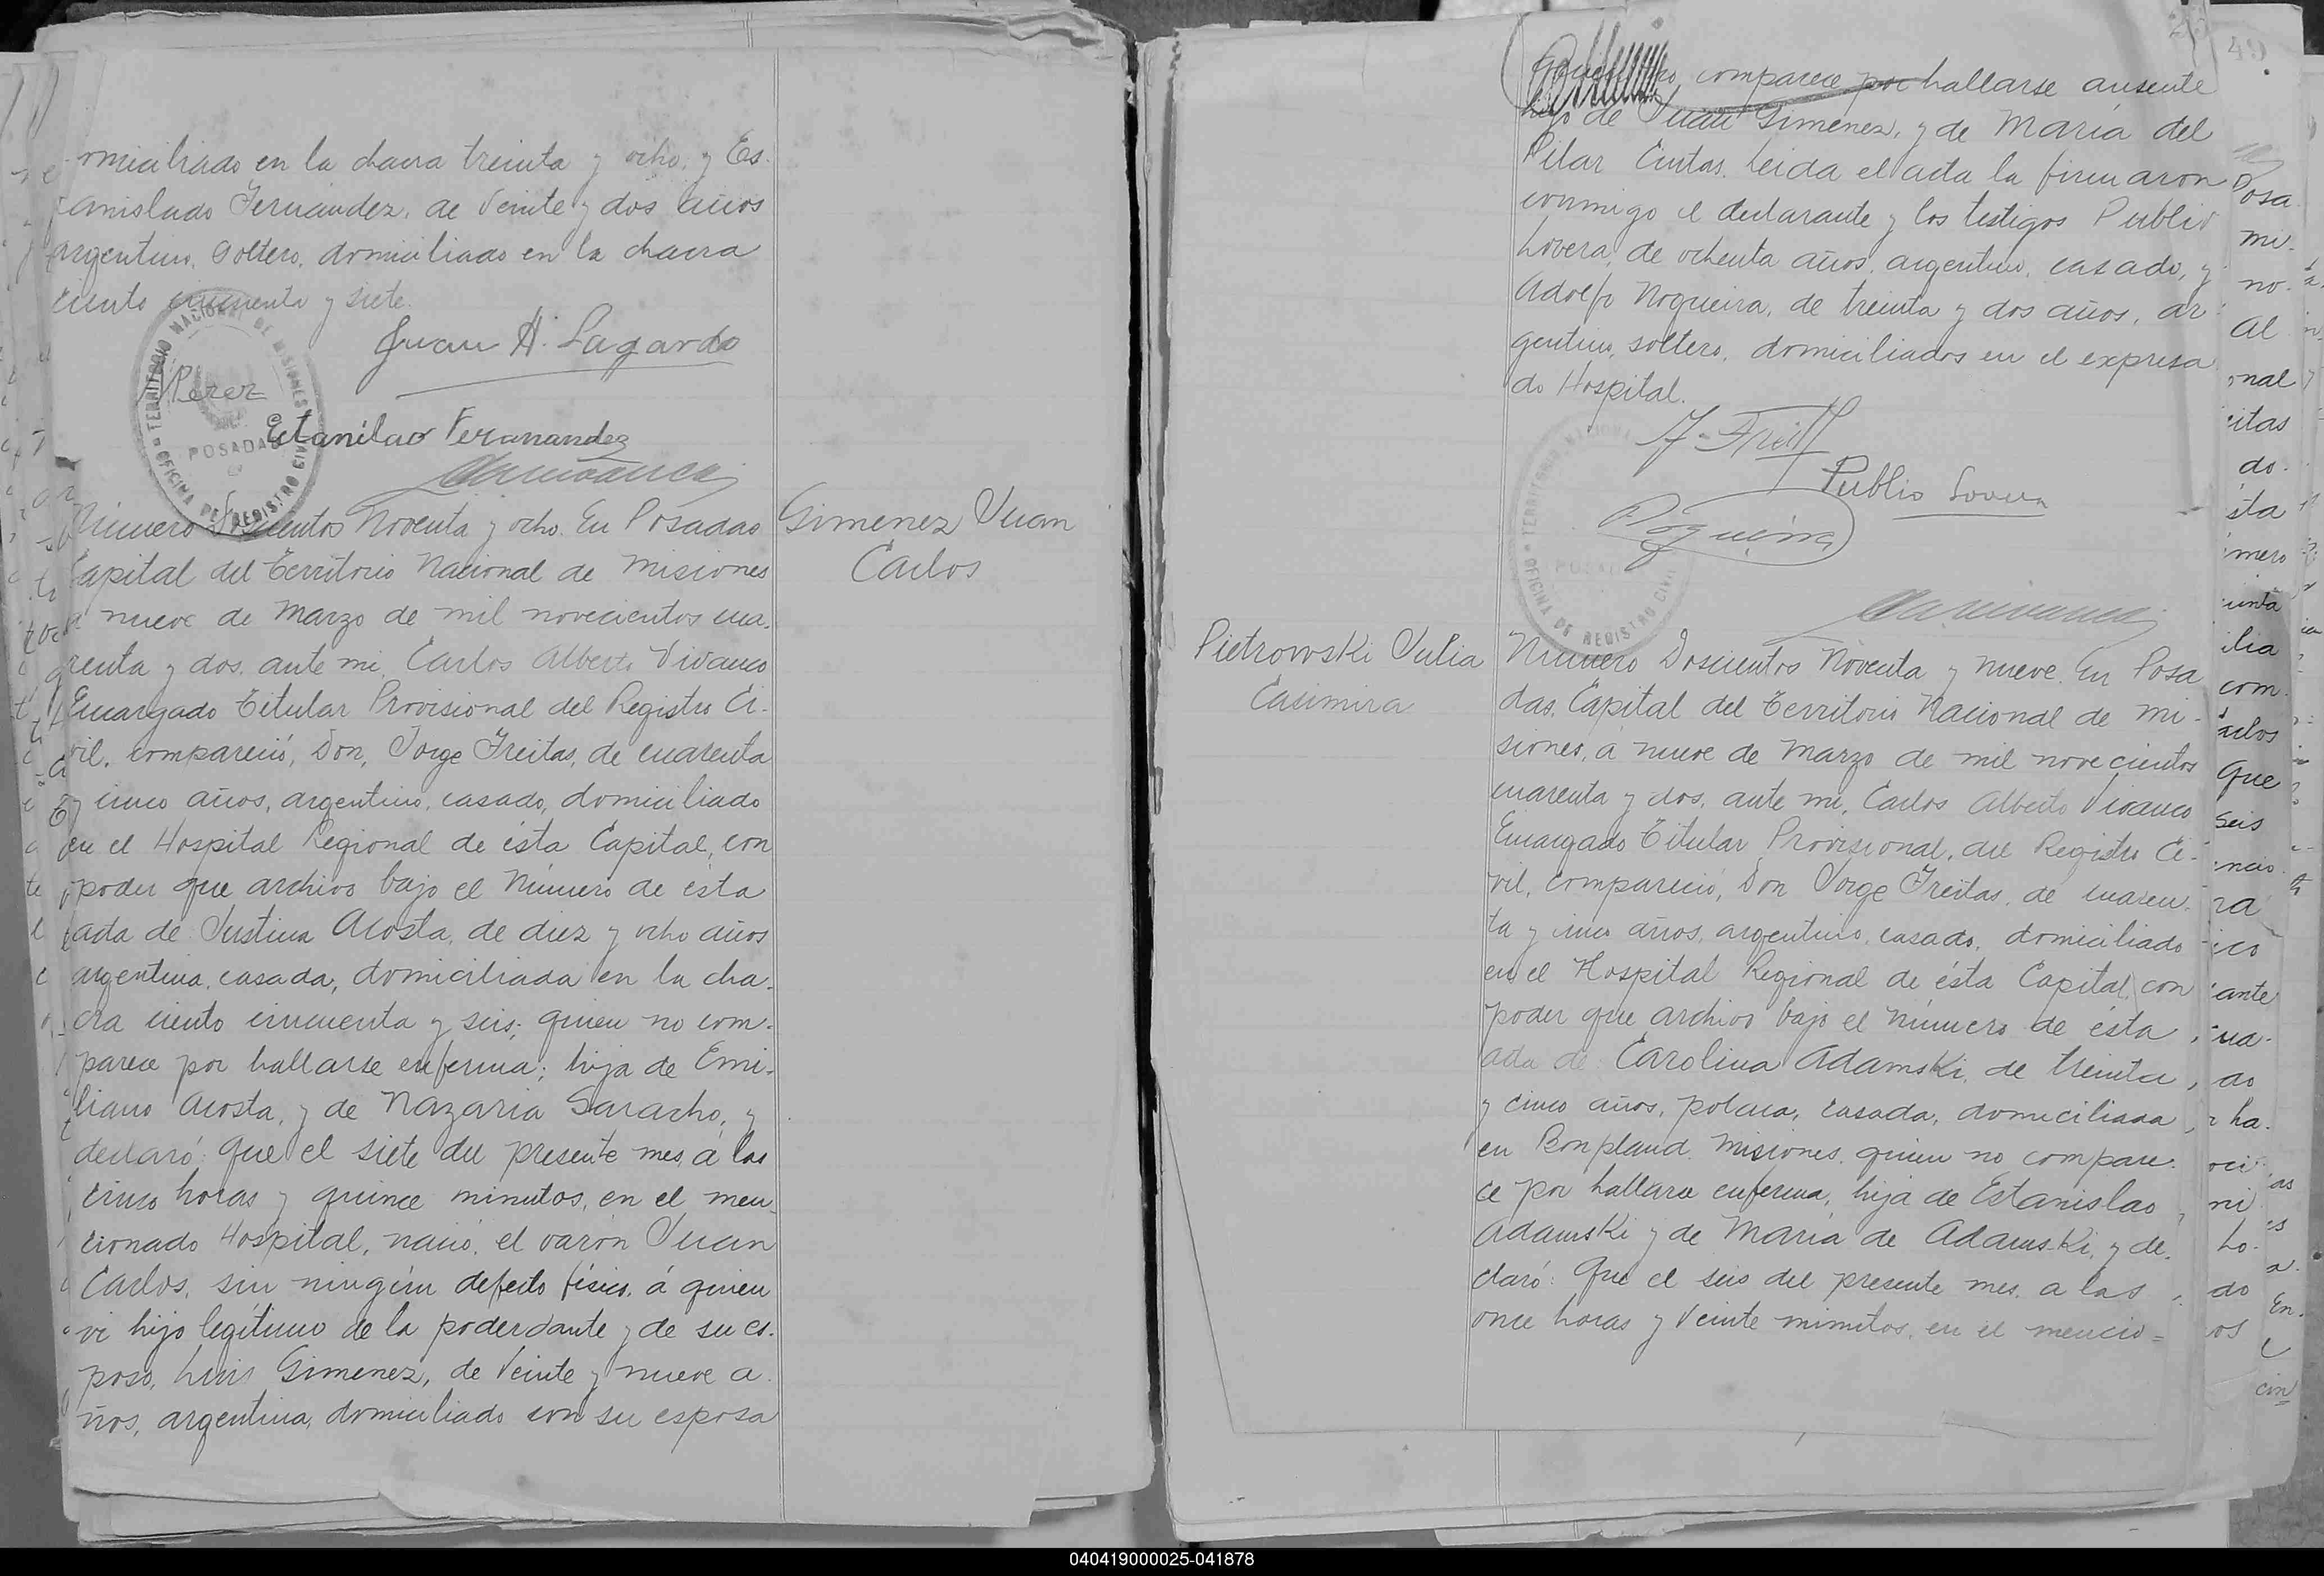 omiciliado en la chacra treinta y ocho, y Es-
tanislado Fernández, de Veinte y dos años
argentino, soltero, domiciliado en la chacra
ciento cincuenta y siete.
Juan A. Lagardo
Perez
Estanilao Fernandez
TERRITORIO NACIONAL DE MISIONES
POSADAS
OFICINA DE REGISTRO CIVIL
Gimenez Juan
Carlos
Número Doscientos Noventa y ocho. En Posadas
Capital del Territorio Nacional de Misiones
a nueve de Marzo de mil novecientos cua-
renta y dos, ante mi, Carlos Alberto Vivanco
Encargado Titular Provisional del Registro Ci-
vil, compareció, Don, Jorge Freitas, de cuarenta
y cinco años, argentino, casado, domiciliado
en el Hospital Regional de ésta Capital, con
poder que archivo bajo el Número de ésta
acta de Justina Acosta, de diez y ocho años
argentina, casada, domiciliada en la cha-
cra ciento cincuenta y seis; quien no com-
parece por hallarse enferma; hija de Emi-
liano Acosta, y de Nazaria Saracho, y
declaró: Que el siete del presente mes, á las
cinco horas y quince minutos, en el men-
cionado Hospital, nació, el varón Juan
Carlos, sin ningún defecto físico, á quien
vi hijo legítimo de la poderdante y de su es-
poso, Luis Gimenez, de Veinte y nueve a-
ños, argentina, domiciliado con su esposa
comparece por hallarse ausente
hijo de Juan Gimenez, y de Maria del
Pilar Cintas. Leida el acta la firmaron
conmigo el declarante y los testigos Publio
Lovera, de ochenta años, argentino, casado, y
Adolfo Noqueira, de treinta y dos años, ar-
gentino, soltero, domiciliados en el expresa
do Hospital.
Publio Lovera
TERRITORIO NACIONAL
POSADAS
OFICINA DE REGISTRO CIVIL
Pietrowski Julia
Casimira
Número Doscientos Noventa y nueve. En Posa
das, Capital del Territorio Nacional de Mi-
siones, á nueve de Marzo de mil novecientos
cuarenta y dos, ante mi, Carlos Alberto Vivanco
Encargado Titular Provisional, del Registro Ci-
vil, compareció, Don Jorge Freitas, de cuaren-
ta y cinco años, argentino, casado, domiciliado
en el Hospital Regional de ésta Capital, con
poder que archivo bajo el número de ésta
acta de Carolina Adamski, de treinta
y cinco años, polaca, casada, domiciliada
en Bonpland, Misiones, quien no compare-
ce por hallarse enferma, hija de Estanislao
Adamski y de María de Adamski, y de-
claró: Que el seis del presente mes, a las
once horas y Veinte minutos, en el mencio=
49
Posa
mi-
no.
al
onal
itas
do.
sta
mero
ilia
com.
arlos
Que
seis
ante
do
ha.
do
En.
040419000025-041878